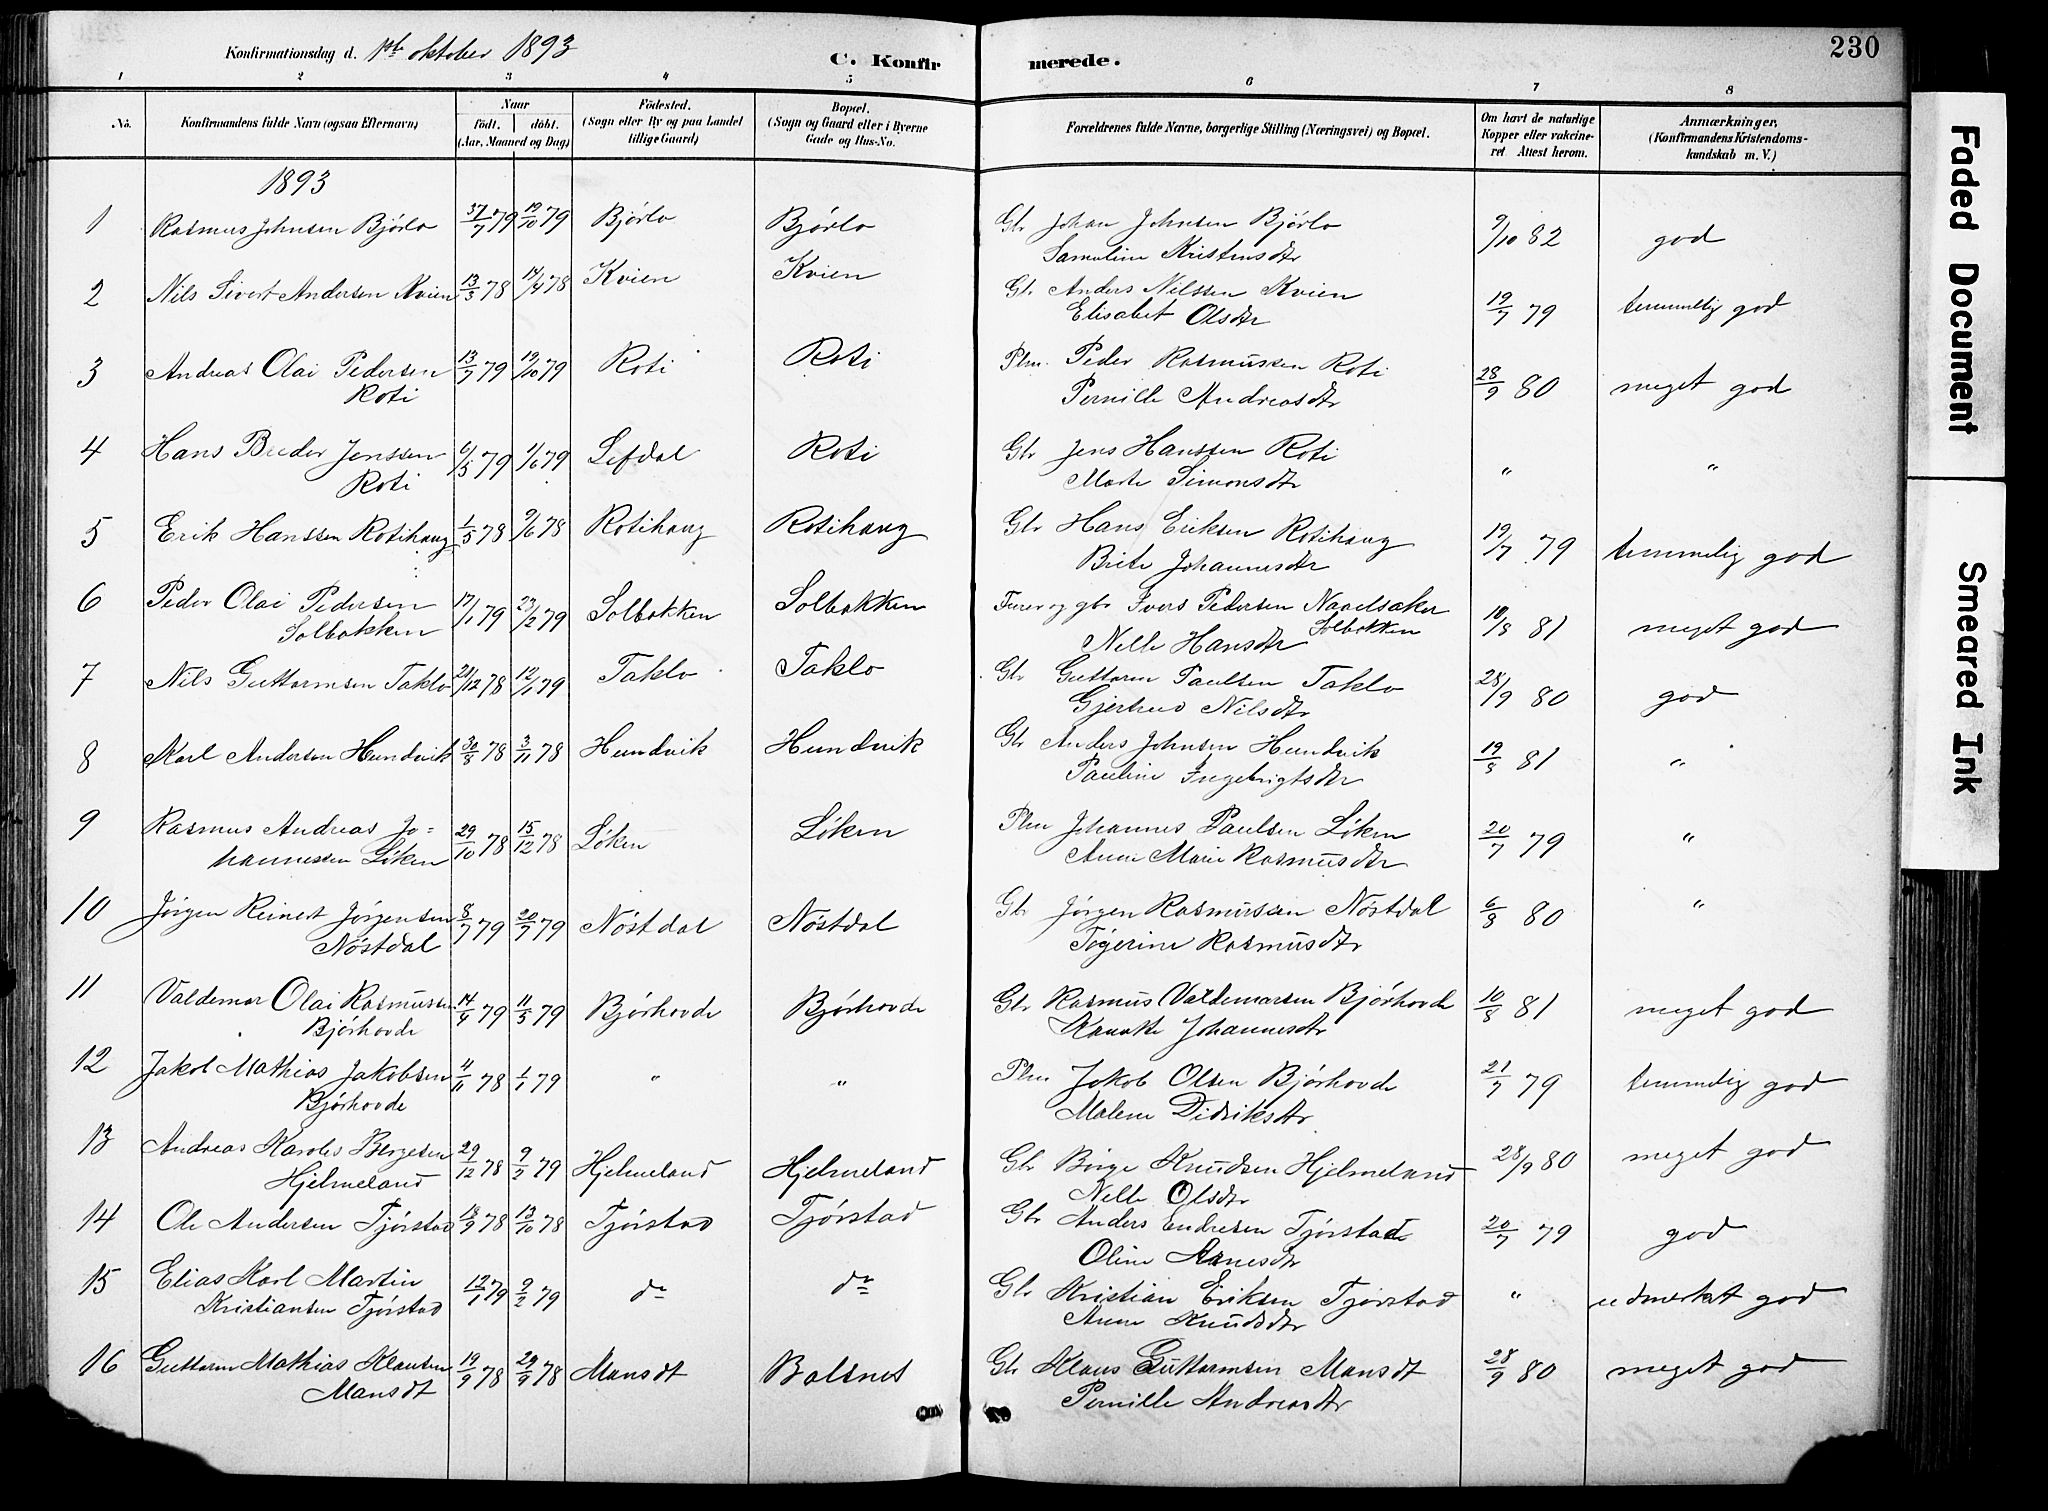 Konfirmationsdag d. 1ste oktober 1893
C. Konfirmerede.
230
1 2 3 4 5 6 7 8
No.
Konfirmandens fulde Navn (ogsaa Efternavn)
Naar
født. døbt.
(Aar, Maaned og Dag)
Fødested.
(Sogn eller By og paa Landet
tillige Gaard)
Bopæl.
(Sogn og Gaard eller i Byerne
Gade og Hus-No.
Forældrenes fulde Navne, borgerlige Stilling (Næringsvei) og Bopæl.
Om havt de naturlige
Kopper eller vakcine-
ret Attest herom.
Anmærkninger,
(Konfirmandens Kristendoms-
kundskab m. V.)
1893
1 Rasmus Johnsen Bjørlo 7 79 19/10 79 Bjørlo Bjørlo Gbr Johan Johnsen Bjørlo 9/10 82 god
Samuline Kristensdtr
2 Nils Sivert Andersen Kvien 13/3 78 14/4 78 Kvien Kvien Gbr Anders Nilssen Kvien 19/7 79 temmelig god
Elisabet Olsdtr
3 Andreas Olai Pedersen 13/7 79 19/10 79 Roti Roti Plm. Peder Rasmussen Roti 28/9 80 meget god
Roti Pernille Andreasdtr
4 Hans Peder Jenssen 6/5 79 1/6 79 Lefdal Roti Gbr Jens Hanssen Roti " "
Roti Marte Simonsdtr
5 Erik Hanssen Rotihaug 1/5 78 9/6 78 Rotihaug Rotihaug Gbr Hans Eriksen Rotihaug 19/7 79 temmelig god
Brite Johannesdtr
6 Peder Olai Pedersen 17/1 79 23/2 79 Solbakken Solbakken og gbr Ivers Pedersen Navelsaker 10/8 81 meget god
Solbakken Solbakken
Nelle Hansdtr
7 Nils Guttormsen Taklo 21/12 78 12/1 79 Taklo Taklo Gbr Guttorm Paulsen Taklo 28/9 80 god
Gjertrud Nilsdtr
8 Karl Andersen Hundvik 30/8 78 3/11 78 Hundvik Hundvik Gbr Anders Johnsen Hundvik 19/8 81 "
Pauline Ingebrigtsdtr
9 Rasmus Andreas Jo= 29/10 78 15/12 78 Løken Løken Plm Johannes Paulsen Løken 20/7 79 "
hannessen Løken Anne Marie Rasmusdtr
10 Jørgen Reinert Jørgensen 8/7 79 20/7 79 Nøstdal Nøstdal Gbr Jørgen Rasmussen Nøstdal 6/8 80 "
Nøstdal Tøgerine Rasmusdtr
11 Valdemar Olai Rasmussen 14/4 79 11/5 79 Bjørhovde Bjørhovde Gbr Rasmus Valdemarsen Bjørhovde 10/8 81 meget god
Bjørhovde Kanutte Johannesdtr
12 Jakob Mathias Jakobsen 11/11 78 1/1 79 " " Plm Jakob Olsen Bjørhovde 21/7 79 temmelig god
Bjørhovde Malene Didriksdtr
13 Andreas Karolus Børgesen 29/12 78 9/2 79 Hjelmeland Hjelmeland Gbr Børge Knudsen Hjelmeland 28/9 80 meget god
Hjelmeland Nelle Olsdtr
14 Ole Andersen Tjørstad 18/9 78 13/10 78 Tjørstad Tjørstad Gbr Anders Endresen Tjørstad 20/7 79 god
Oline Arnesdtr
15 Elias Karl Martin 12/1 79 9/2 79 do do Gbr Kristian Eriksen Tjørstad " udmerket god
Kristiansen Tjørstad Anne Knudsdtr
16 Guttorm Mathias Klausen 19/9 78 29/9 78 Mansdt Balsnes Gbr Klaus Guttormsen Mansdt 28/9 80 meget god
Mansdt Pernille Andreasdtr
Faded Document
Smeared Ink